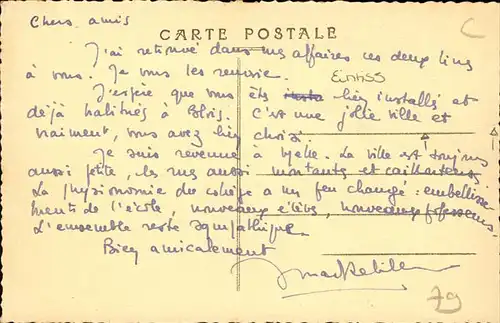 Chers amis
C
CARTE POSTALE
J'ai retrouvé dans mes affaires ces deux livres
à vous. Je vous les renvoie.
EntISS
J'espère que vous êtes bien installés et
déjà habitués à Blois. C'est une jolie ville et
vraiment, vous avez bien choisi.
Je suis revenue à Thelle. La ville est toujours
aussi petite, les rues aussi montantes et caillouteuses.
La physionomie du collège a un peu changé : embellisse-
ments de l'école, nouveaux élèves, nouveaux professeurs.
L'ensemble reste sympathique.
Bien amicalement
79